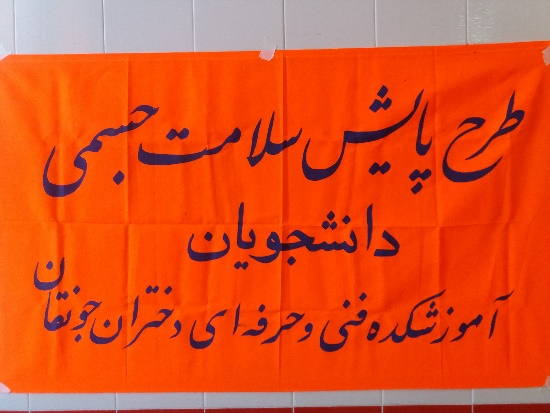 طرح پایش سلامت جسمی
دانشجویان
آموزشکده فنی و حرفه ای دختران جونقان